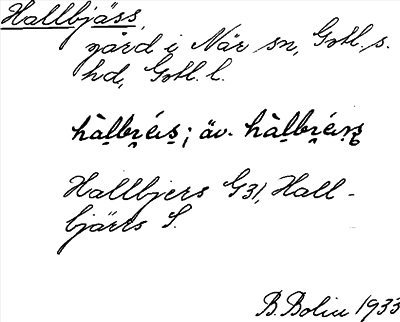 Hallbjäss,
gård i När sn, Gotl. s.
hd, Gotl. l.
hàlbréis; äv. hàlbréiṛs
Hallbjers G31, Hall-
bjärs S.
B. Bolin 1933